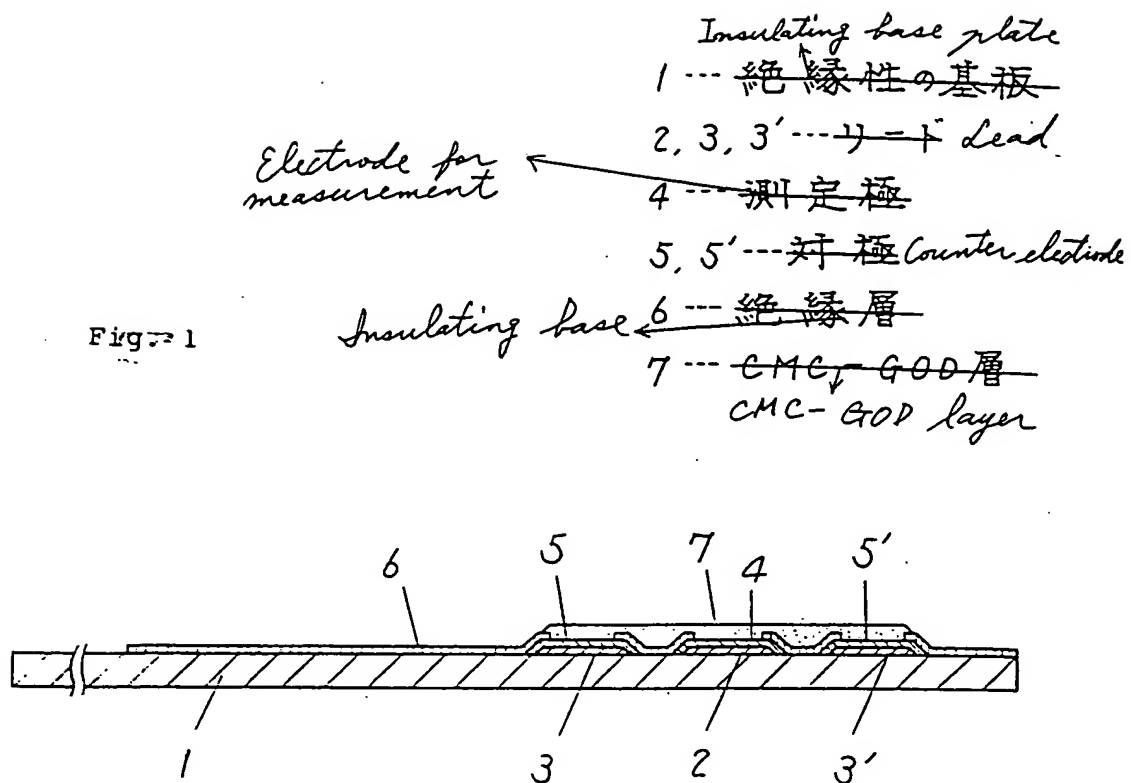 Insulating base plate
1 --- 絶縁性の基板
2, 3, 3' --- リード Lead.
Electrode for
measurement
4 --- 測定極
5, 5' --- 対極 Counter electrode
6 --- 絶縁層
Insulating base
Fig. 1
7 --- CMC-GOD層
CMC-GOD layer
6 5 7 4 5'
1 3 2 3'